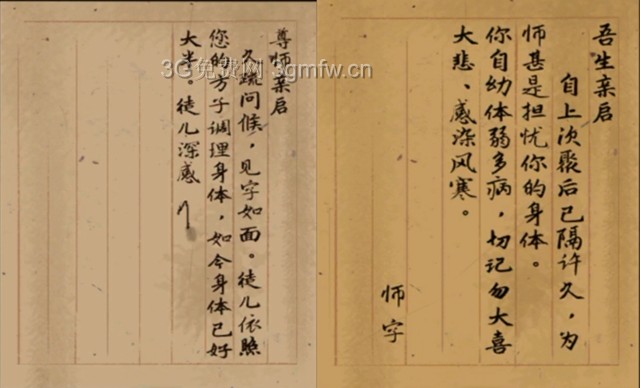 尊师亲启
久疏问候，见字如面。徒儿依照
您的方子调理身体，如今身体已好
大半。徒儿深感
3G免费网 3gmfw.cn
吾生亲启
自上次聚后已隔许久，为
师甚是担忧你的身体。
你自幼体弱多病，切记勿大喜
大悲、感染风寒。
师字